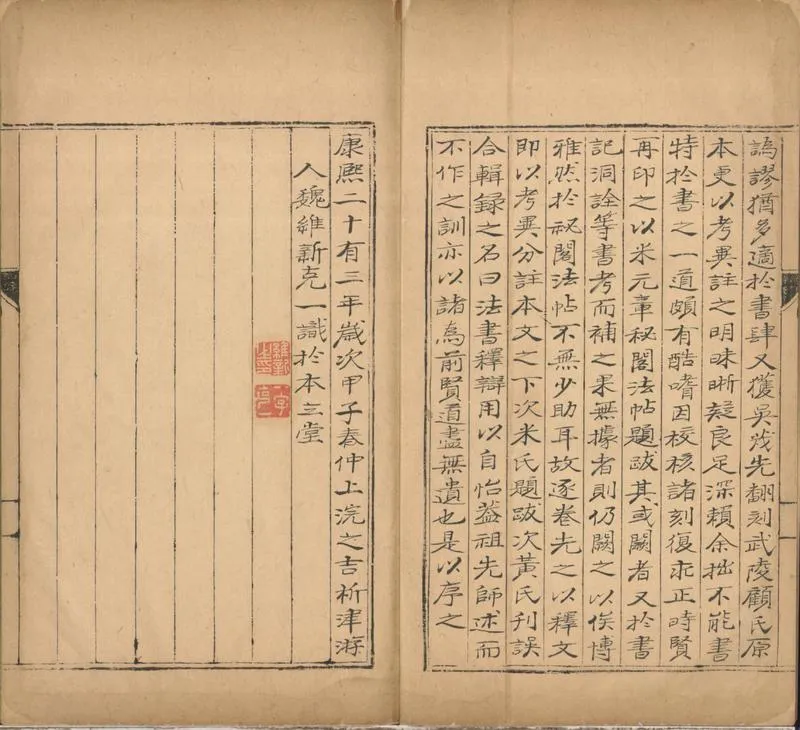 譌謬猶多適於書肆又獲吳茂先翻刻武陵顧氏原
本更以考異註之明昧晰疑良足深賴余拙不能書
特於書之一道頗有酷嗜因校核諸刻復求正時賢
再印之以米元章秘閣法帖題跋其或闕者又於書
記洞詮等書考而補之果無據者則仍闕之以俟博
雅然於秘閣法帖不無少助耳故逐卷先之以釋文
即以考異分註本文之下次米氏題跋次黃氏刊誤
合輯錄之名曰法書釋辯用以自怡蓋祖先師述而
不作之訓亦以諸為前賢道盡無遺也是以序之
康熙二十有三年歲次甲子春仲上浣之吉析津游
人魏維新克一識於本立堂
維新之印
一字克一